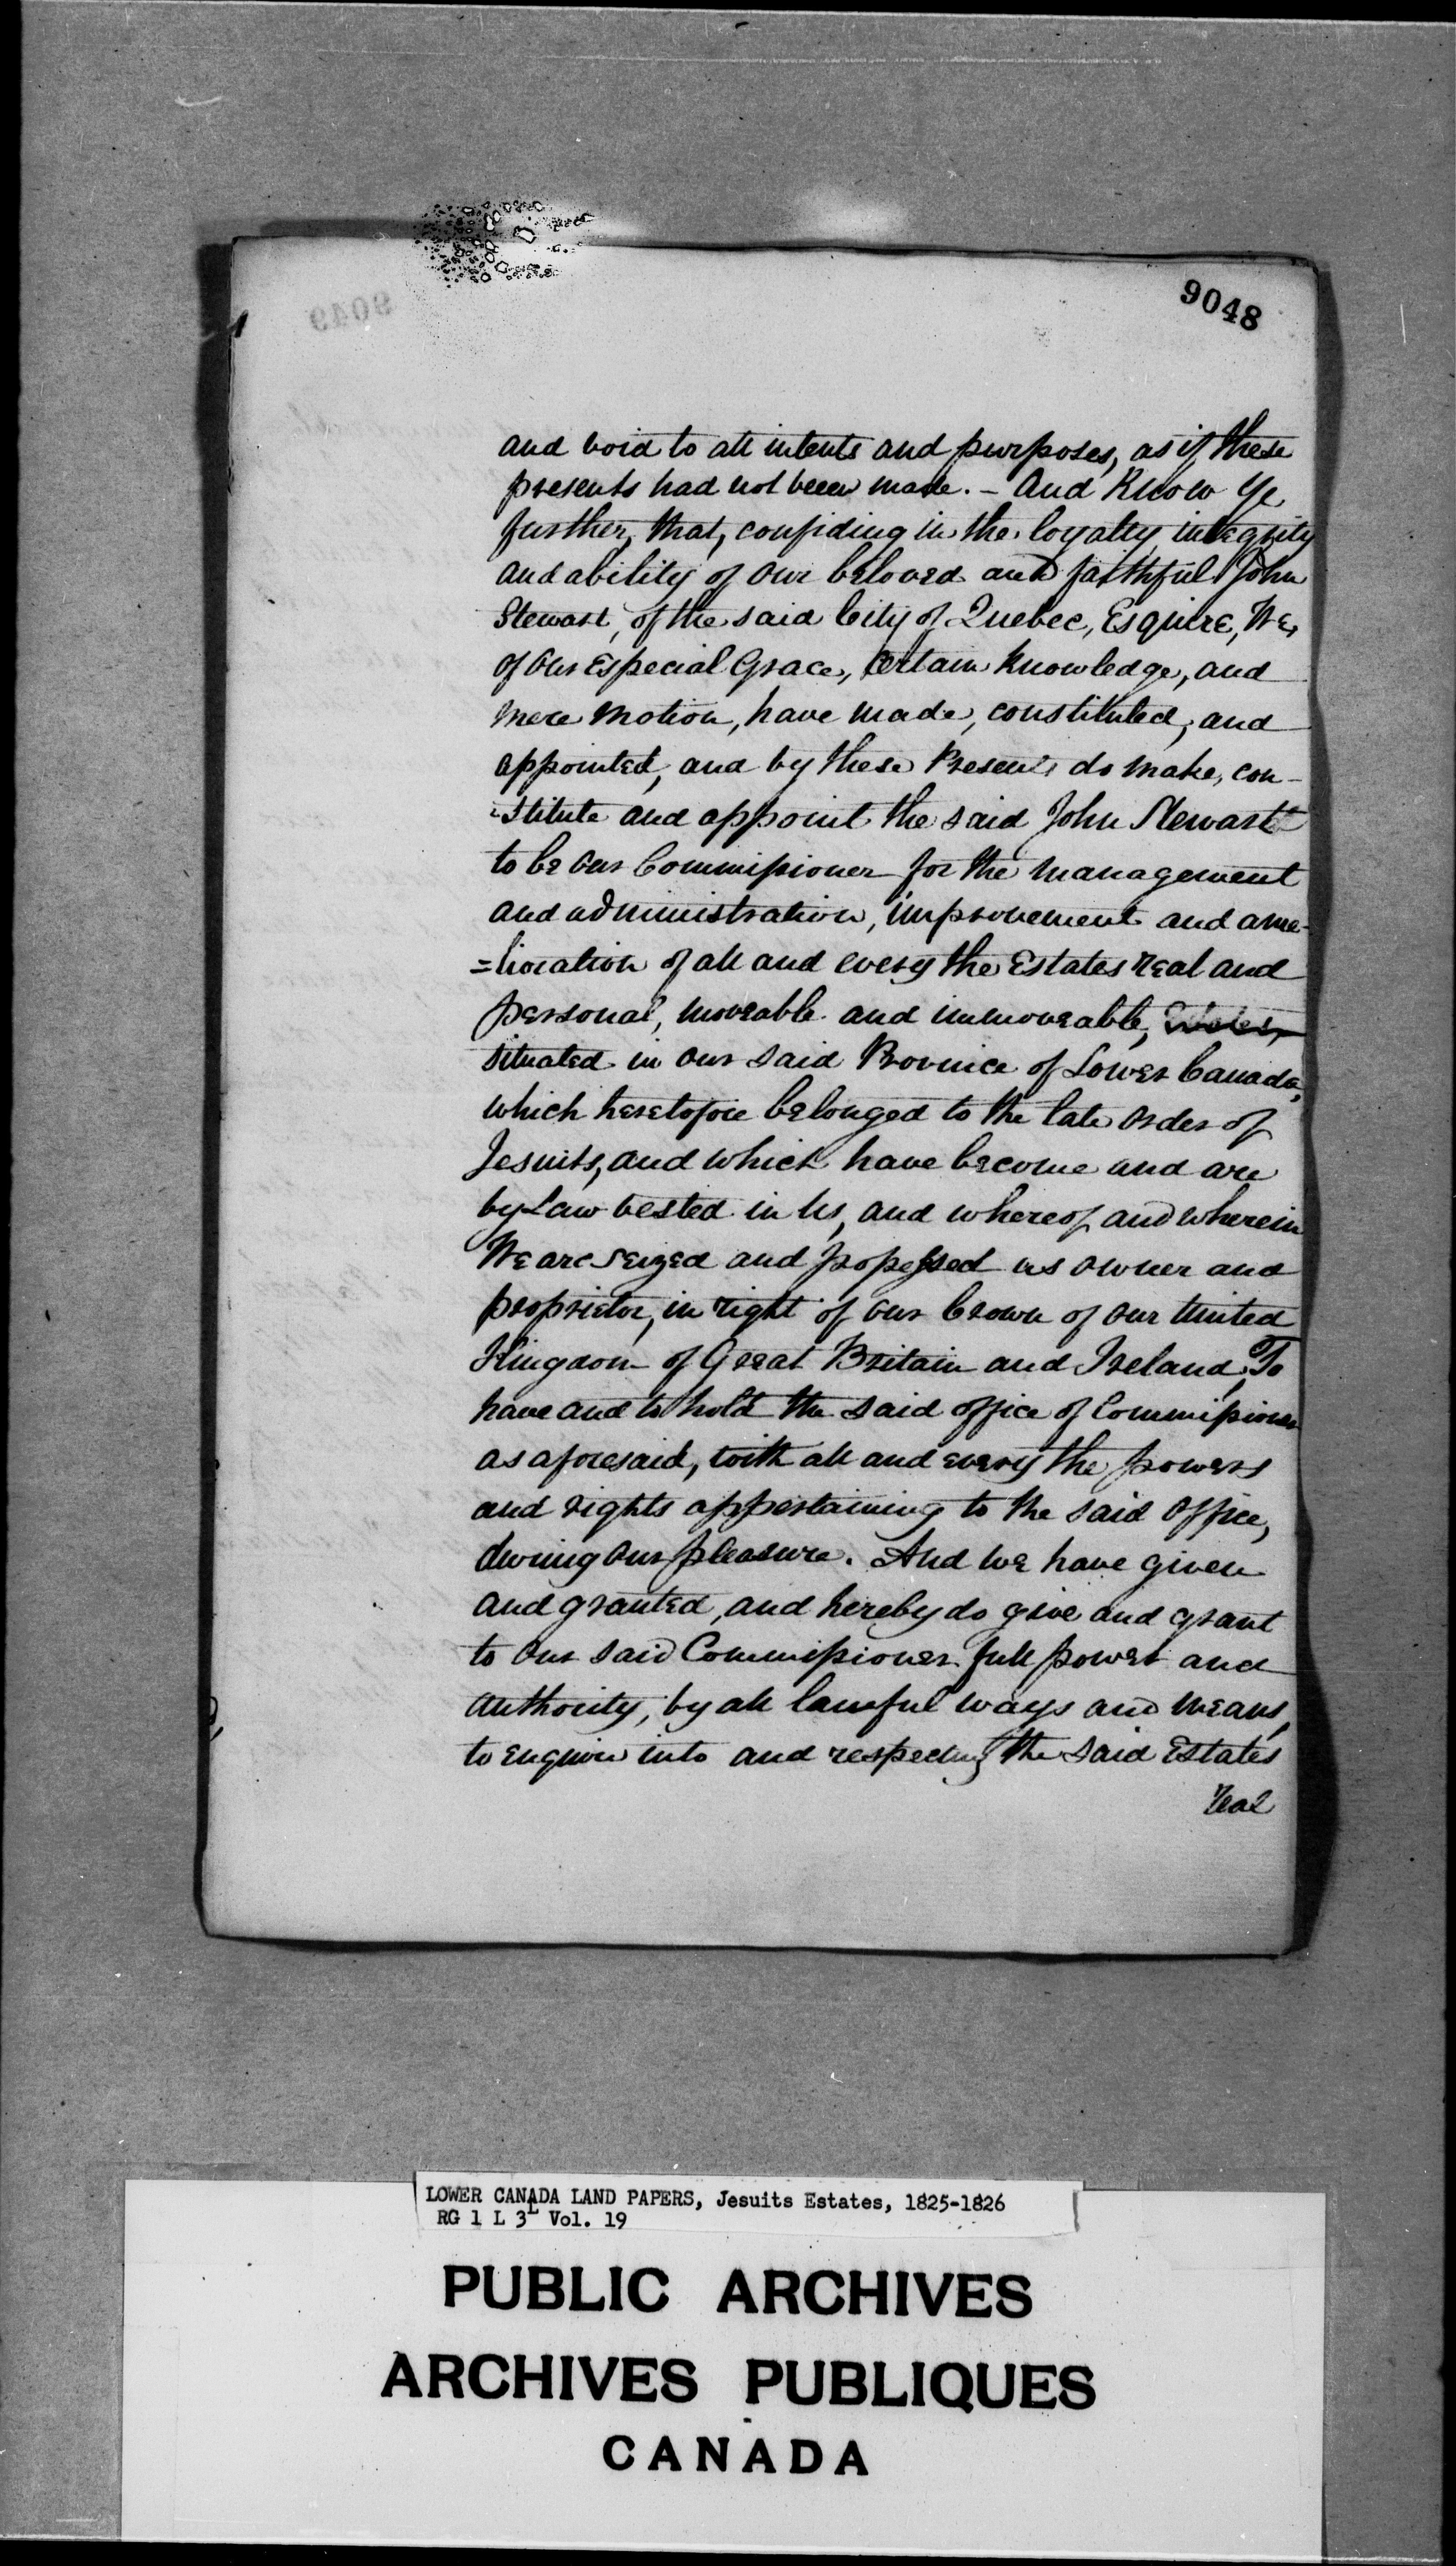 9048
and void to all intents and purposes, as if these
presents had not been made. - And Know Ye
further, that, confiding in the loyalty integrity
and ability of Our beloved and faithful John
Stewart, of the said City of Quebec, Esquire, We,
of Our Especial Grace, Certain Knowledge, and
mere motion, have made, constituted, and
appointed, and by these Presents do make, con-
-stitute and appoint the said John Stewart
to be Our Commissioner for the management
and administration, improvement and ame-
=lioration of all and every the Estates real and
personal, moveable and immoveable,
situated in Our said Province of Lower Canada,
which heretofore belonged to the late Order of
Jesuits, and which have become and are
by Law vested in Us, and whereof and wherein
We are seized and possessed as Owner and
proprietor, in right of Our Crown of Our United
Kingdom of Great Britain and Ireland, To
have and to hold the said office of Commissioner
as aforesaid, with all and every the powers
and rights appertaining to the said Office,
during Our pleasure. And We have given
and granted, and hereby do give and grant
to Our said Commissioner full power and
authority, by all lawful ways and means,
to enquire into and respecting the said Estates
real
LOWER CANADA LAND PAPERS, Jesuits Estates, 1825-1826
RG 1 L 3L Vol. 19
PUBLIC ARCHIVES
ARCHIVES PUBLIQUES
CANADA